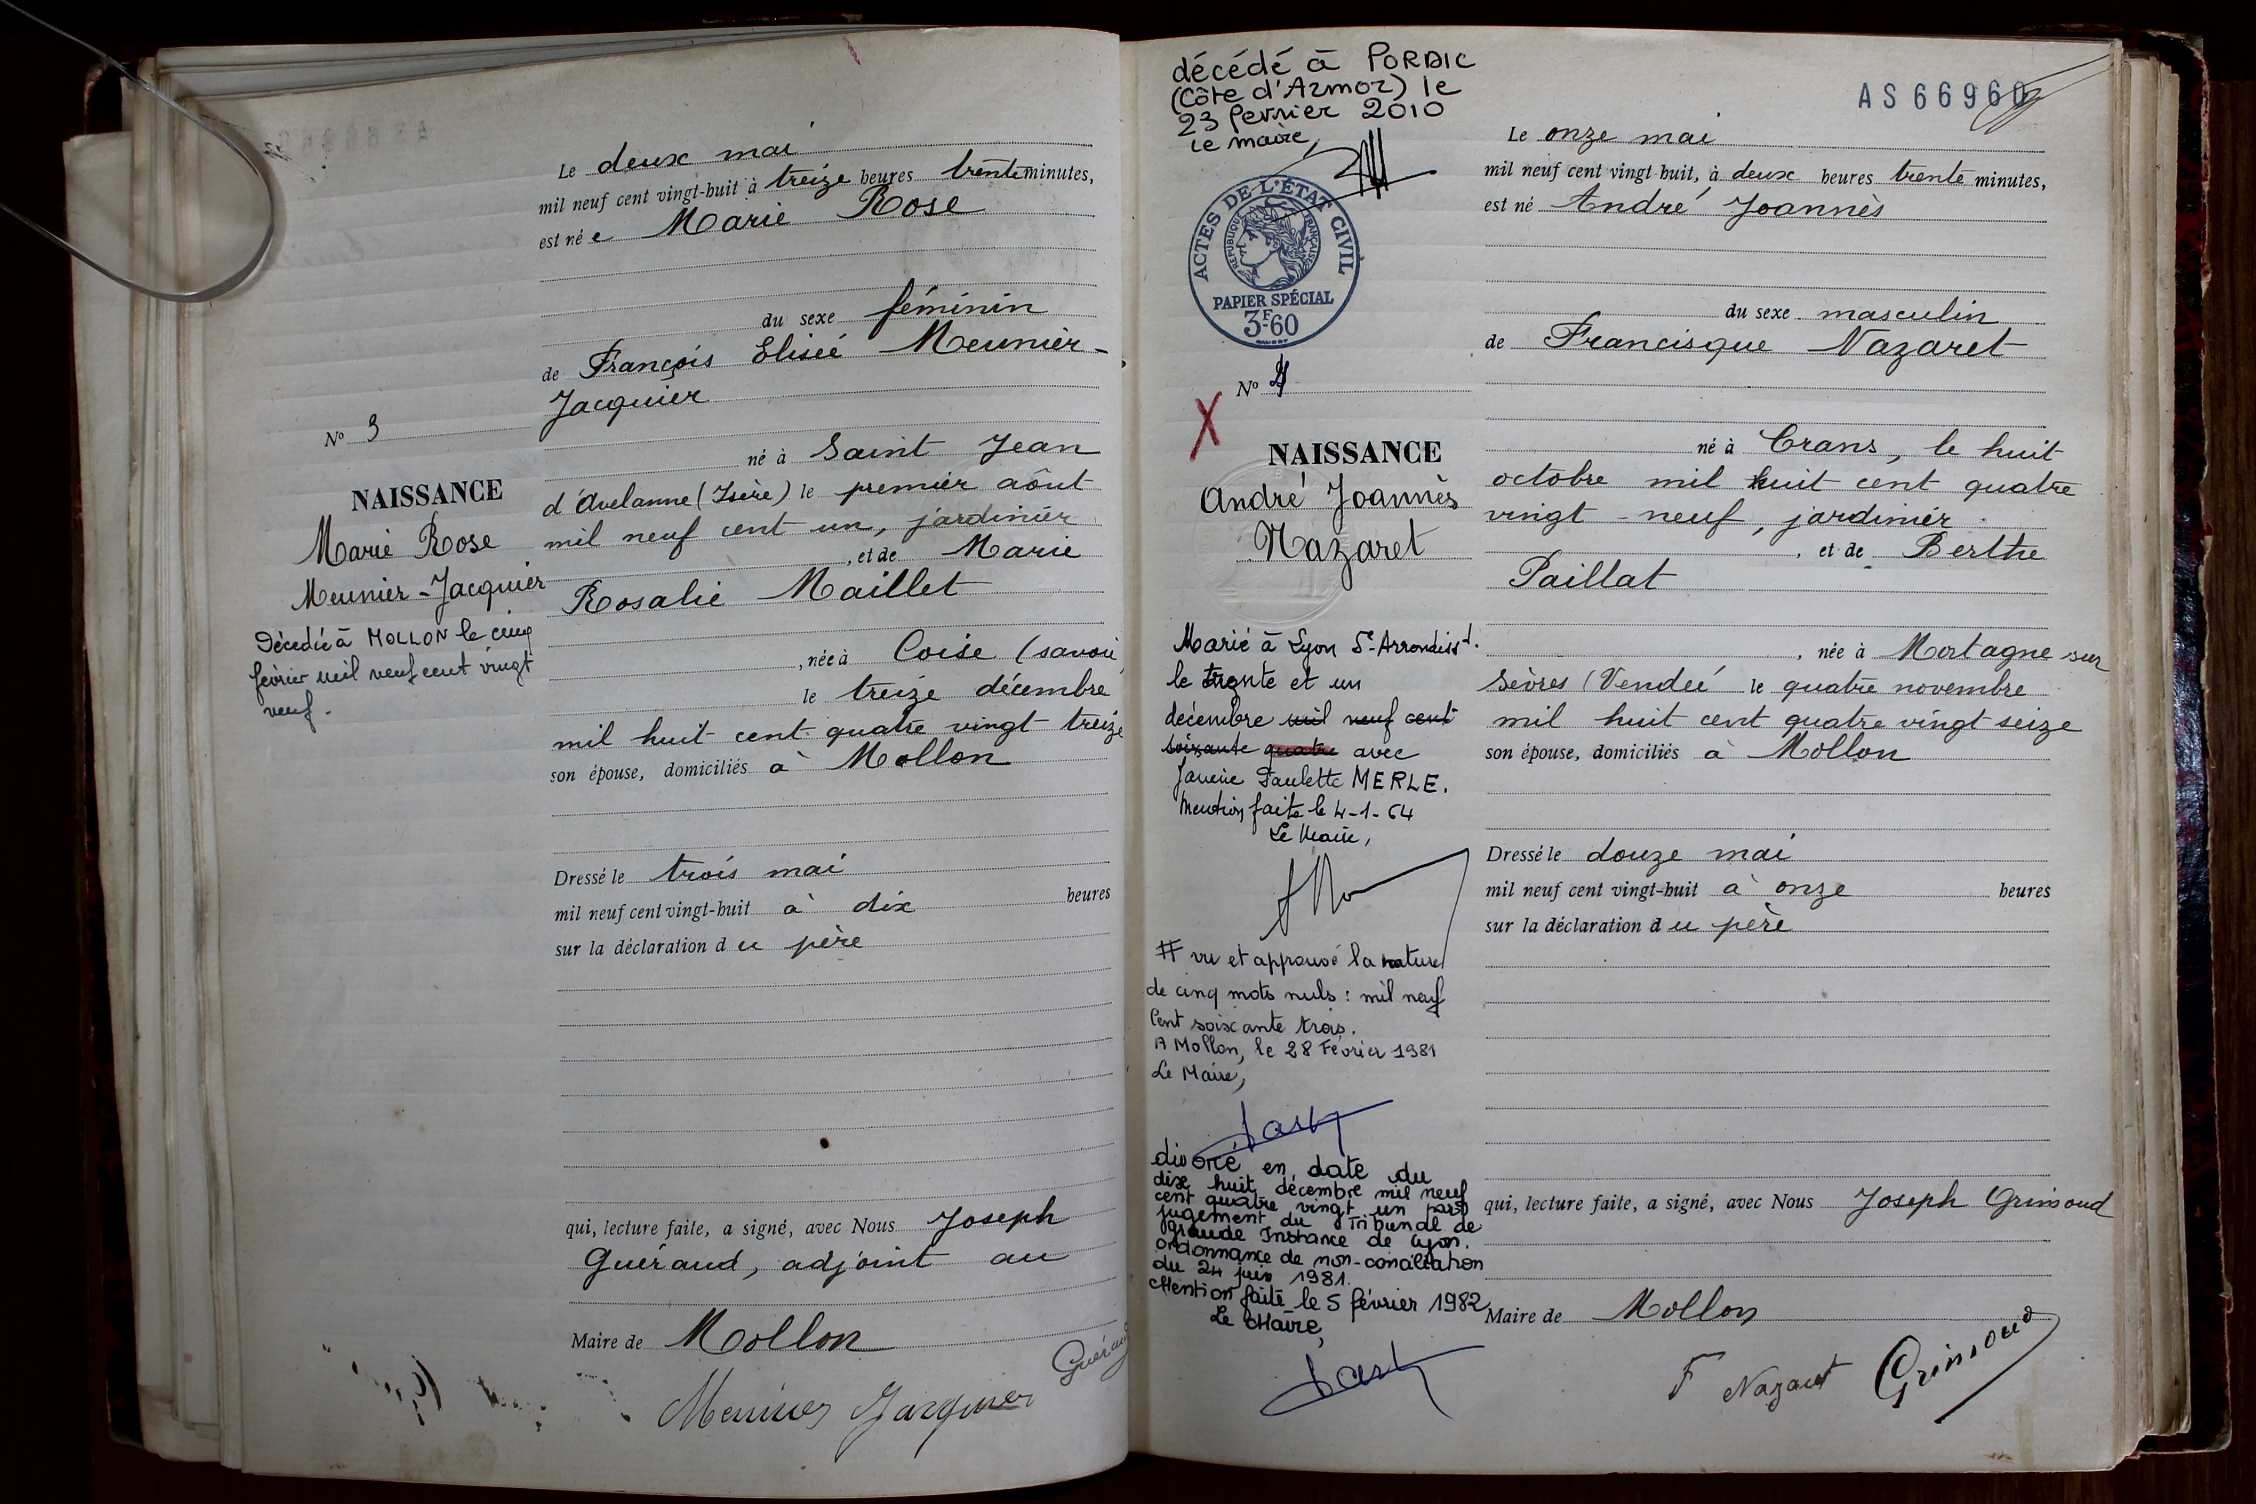 Le deux mai
mil neuf cent vingt-huit à treize heures trente minutes,
est né e Marie Rose
du sexe féminin
de François Elisée Meunier-
Jacquier
N° 3
né à Saint Jean
d'Avelanne (Isère) le premier août
mil neuf cent un, jardinier
, et de Marie
Rosalie Maillet
, née à Coise (savoie
le treize décembre
mil huit cent quatre vingt treize
son épouse, domiciliés à Mollon
NAISSANCE
Marie Rose
Meunier-Jacquier
Décédée à MOLLON le cinq
février mil neuf cent vingt
neuf.
Dressé le trois mai
mil neuf cent vingt-huit à dix heures
sur la déclaration d u père
qui, lecture faite, a signé, avec Nous Joseph
Guéraud, adjoint au
Maire de Mollon
Guéraud
Meunier Jacquier
décédé à PORDIC
(Côte d'Armor) le
23 fevrier 2010
Le maire,
ACTES DE L'ÉTAT CIVIL
RÉPUBLIQUE FRANÇAISE
PAPIER SPÉCIAL
3F-60
N°
NAISSANCE
André Joannès
Nazaret
Marié à Lyon 5e Arrondisst.
le trente et un
décembre mil neuf cent
soixante quatre avec
Janine Paulette MERLE.
Mention faite le 4-1-64
Le Maire,
# vu et approuvé la rature
de cinq mots nuls : mil neuf
Cent soixante trois.
A Mollon, le 28 Février 1981
Le Maire,
divorcé en date du
dix huit décembre mil neuf
cent quatre vingt un par
jugement du Tribunal de
grande Instance de Lyon.
Ordonnance de non-conciliation
du 24 juin 1981.
Mention faite le 5 février 1982
Le Maire,
AS66960
Le onze mai
mil neuf cent vingt huit, à deux heures trente minutes,
est né André Joannès
du sexe masculin
de Francisque Nazaret
né à Crans, le huit
octobre mil huit cent quatre
vingt-neuf, jardinier
, et de Berthe
Paillat
, née à Mortagne sur
Sèvres (Vendée le quatre novembre
mil huit cent quatre vingt seize
son épouse, domiciliés à Mollon
Dressé le douze mai
mil neuf cent vingt-huit à onze heures
sur la déclaration d u père
qui, lecture faite, a signé, avec Nous Joseph Grimoud
Maire de Mollon
F Nazaret
Grimoud